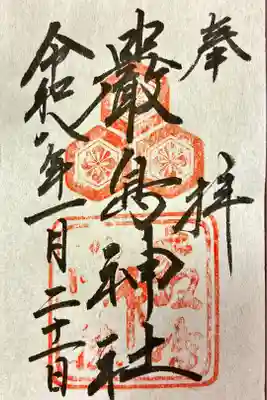 奉拝
嚴島神社
令和八年一月二十一日